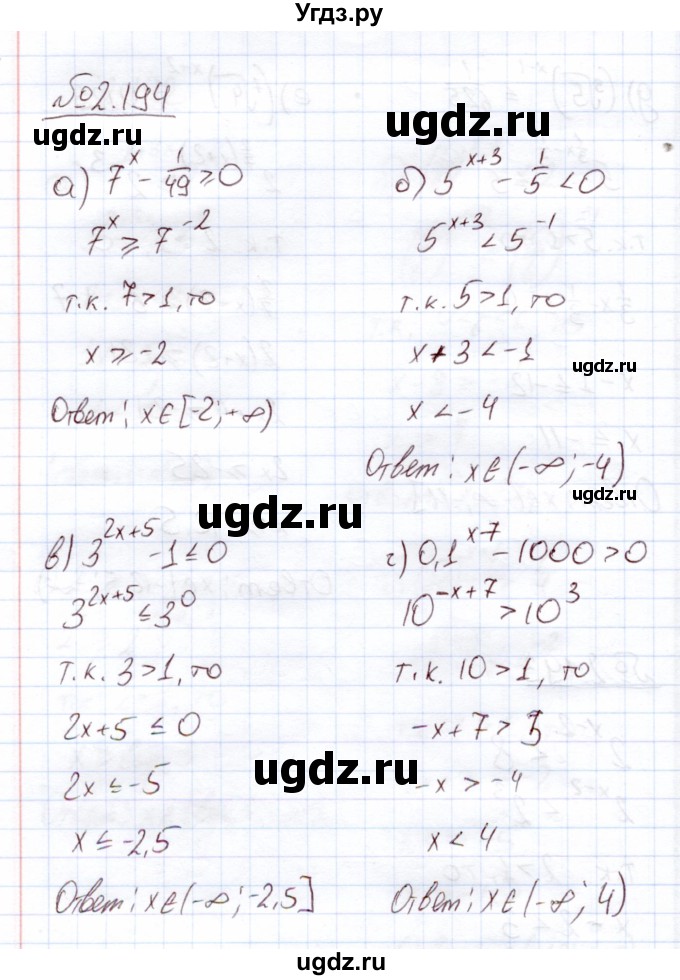 Угдз.ру
№2.194
ugdz.ru
ugdz.ru
а) 7^x - 1/49 ≥ 0
7^x ≥ 7^-2
т.к. 7>1, то
x ≥ -2
Ответ: x∈[-2; +∞)
б) 5^x+3 - 1/5 < 0
5^x+3 < 5^-1
т.к. 5>1, то
x+3 < -1
ugdz.ru
x < -4
Ответ: x∈(-∞; -4)
ugdz.ru
ugdz.ru
в) 3^2x+5 - 1 ≤ 0
3^2x+5 ≤ 3^0
т.к. 3>1, то
2x+5 ≤ 0
2x ≤ -5
x ≤ -2,5
Ответ: x∈(-∞; -2,5]
г) 0,1^x-7 - 1000 > 0
10^-x+7 > 10^3
т.к. 10>1, то
-x+7 > 3
ugdz.ru
-x > -4
x < 4
Ответ: x∈(-∞; 4)
ugdz.ru
ugdz.ru